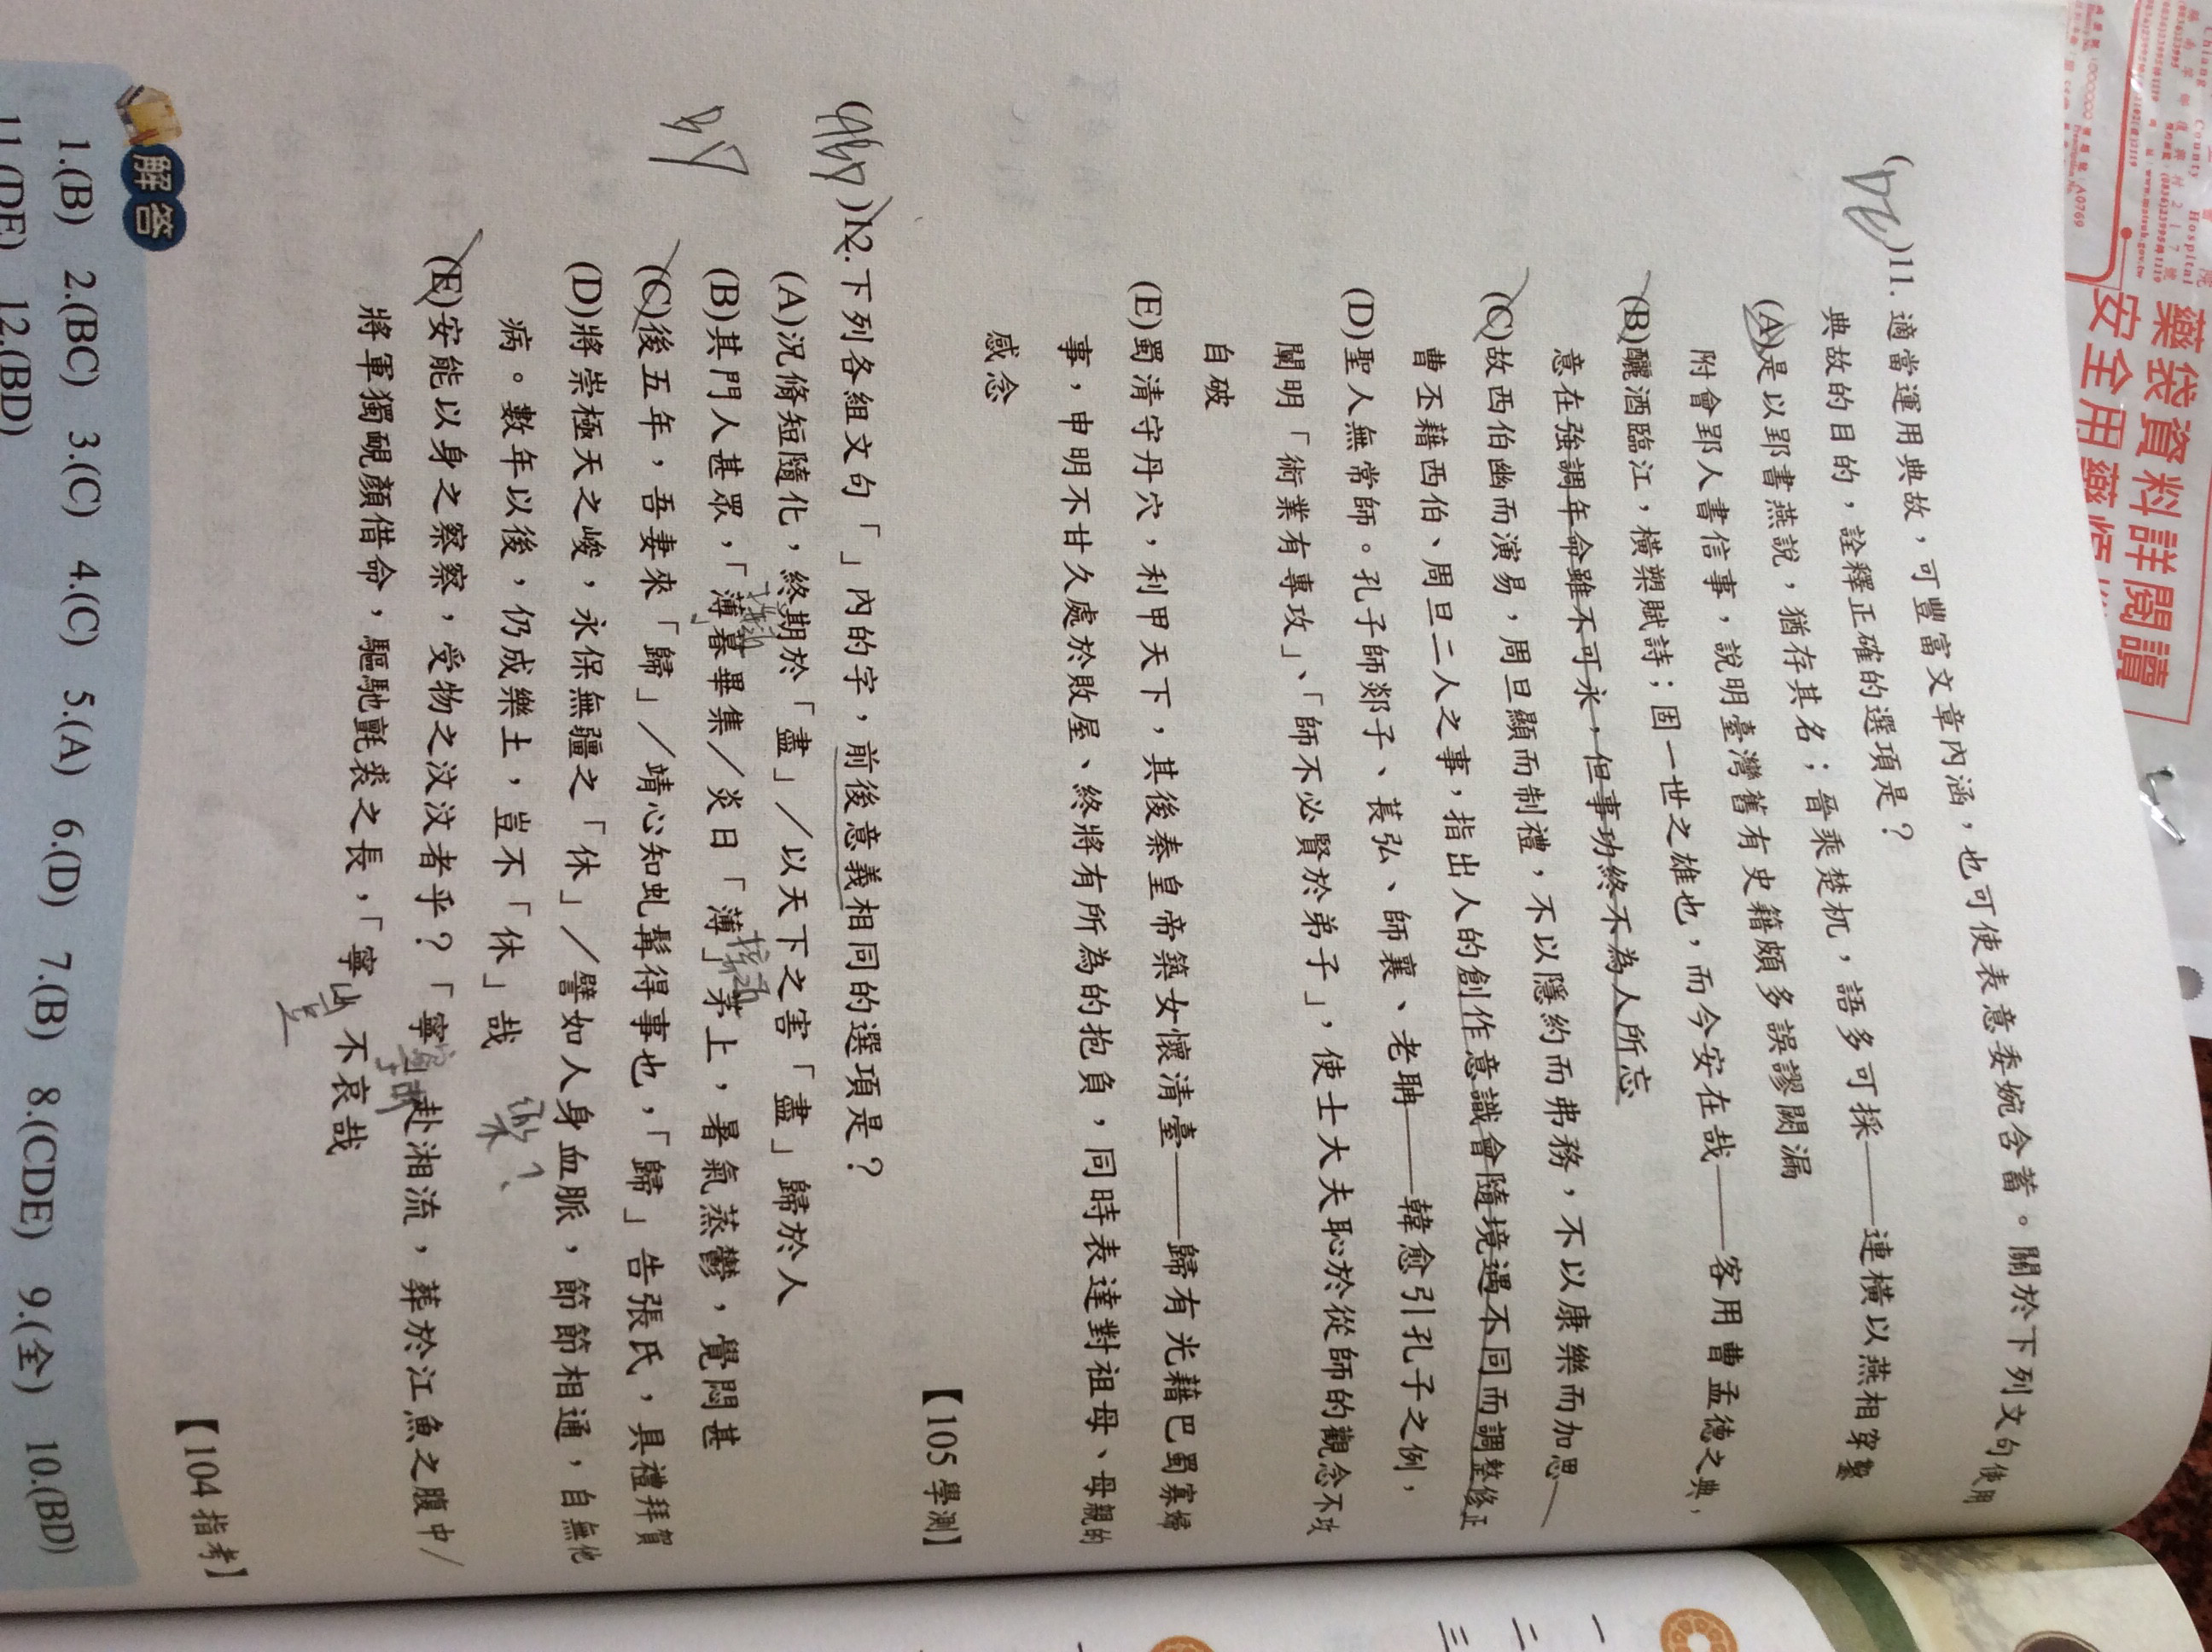 藥袋資料詳閱讀
安全用藥
(DE)11.適當運用典故,可豐富文章內涵,也可使表意委婉含蓄。關於下列文句使用
典故的目的,詮釋正確的選項是?
(A)是以郢書燕說,猶存其名;晉乘楚杌,語多可採——連橫以燕相穿鑿
附會郢人書信事,說明臺灣舊有史籍頗多誤謬闕漏
(B)釃酒臨江,橫槊賦詩;固一世之雄也,而今安在哉——客用曹孟德之典,
意在強調年命雖不可永,但事功終不為人所忘
(C)故西伯幽而演易,周旦顯而制禮,不以隱約而弗務,不以康樂而加思——
曹丕藉西伯、周旦二人之事,指出人的創作意識會隨境遇不同而調整修正
(D)聖人無常師。孔子師郯子、萇弘、師襄、老聃——韓愈引孔子之例,
闡明「術業有專攻」、「師不必賢於弟子」,使士大夫恥於從師的觀念不攻
自破
(E)蜀清守丹穴,利甲天下,其後秦皇帝築女懷清臺——歸有光藉巴蜀寡婦
事,申明不甘久處於敗屋、終將有所為的抱負,同時表達對祖母、母親的
感念
【105學測】
12.下列各組文句「」內的字,前後意義相同的選項是?
(A)況脩短隨化,終期於「盡」/以天下之害「盡」歸於人
(B)其門人甚眾,「薄」暮畢集/炎日「薄」茅上,暑氣蒸鬱,覺悶甚
接近
接近
(C)後五年,吾妻來「歸」/靖心知虬髯得事也,「歸」告張氏,具禮拜賀
(D)將崇極天之峻,永保無疆之「休」/譬如人身血脈,節節相通,自無他
病。數年以後,仍成樂土,豈不「休」哉
(E)安能以身之察察,受物之汶汶者乎?「寧」赴湘流,葬於江魚之腹中/
將軍獨靦顏借命,驅馳氈裘之長,「寧」不哀哉
豈
【104指考】
解答
1.(B) 2.(BC) 3.(C) 4.(C) 5.(A) 6.(D) 7.(B) 8.(CDE) 9.(全) 10.(BD)
11.(DE) 12.(BD)
一
二
三